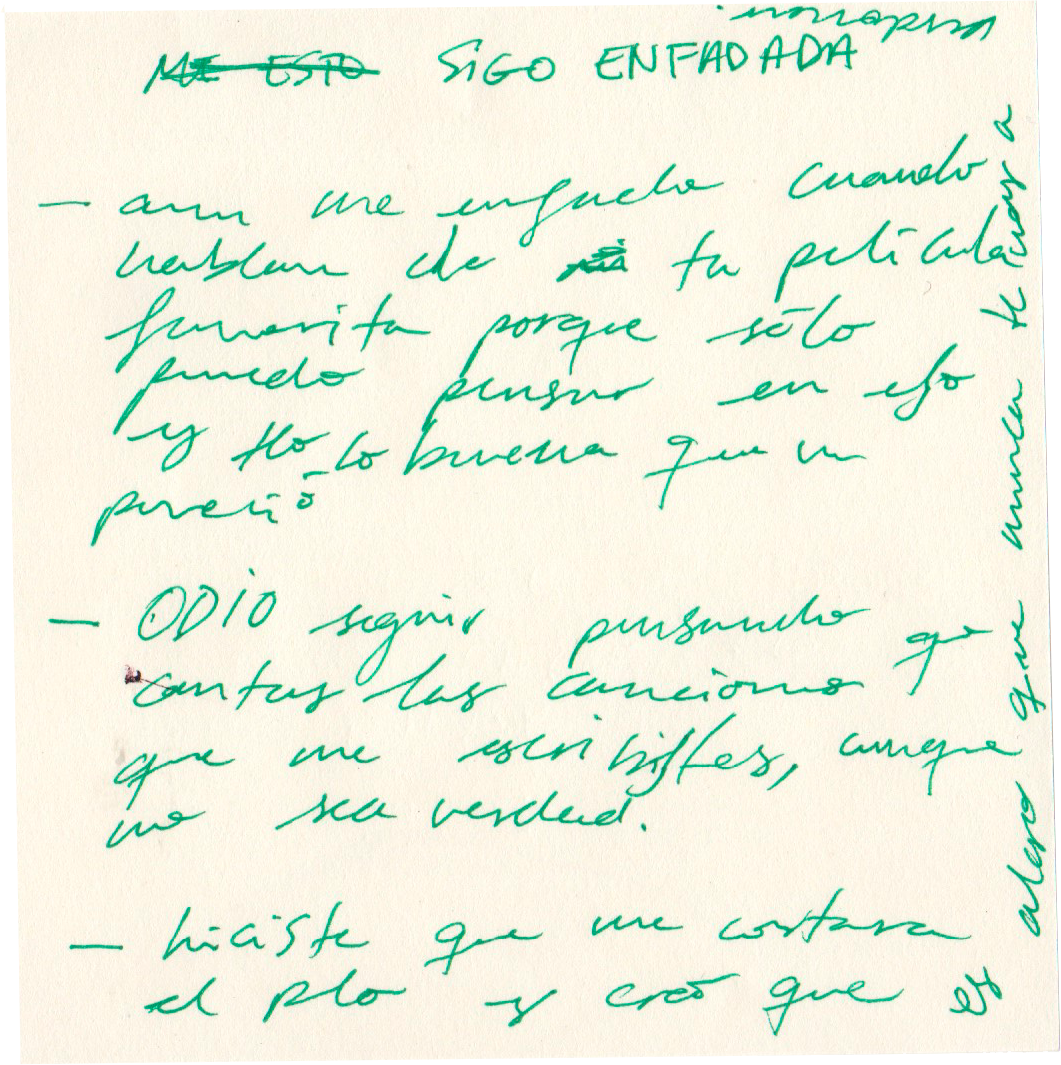 ME ESTO SIGO ENFADADA
- aun me enfada cuando
hablan de tu película
favorita porque sólo
puedo pensar en eso
y lo buena que
pareció
- ODIO seguir pensando que
cantas las canciones
que me escribistes, aunque
no sea verdad.
- hiciste que me cortara
el plo y creo que
es algo que nunca te vas a
perdonar.